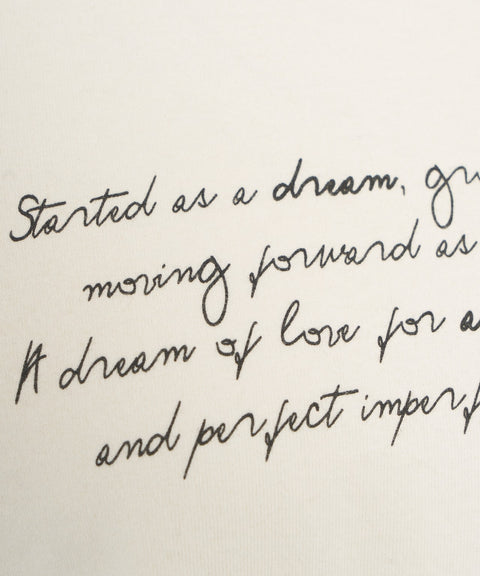 Started as a dream, gr
moving forward as
A dream of love for a
and perfect imperf